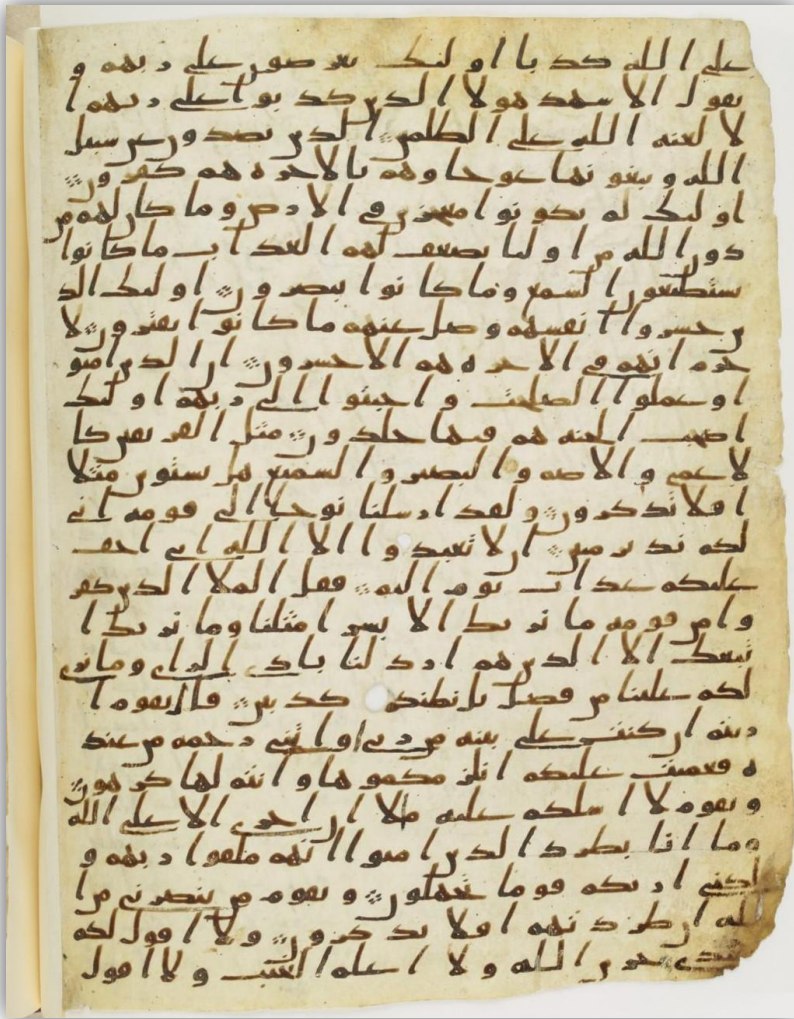 على الله كذبا اولئك يعرضون على ربهم و
يقول الاشهد هولا الذين كذبوا على ربهم ا
لا لعنه الله على الظلمين الذين يصدون عن سبيل
الله و يبغونها عوجا وهم بالاخره هم كفرون
اولئك لم يكونوا معجزين في الارض وما كان لهم من
دون الله من اوليا يضعف لهم العذاب ما كانوا
يستطيعون السمع وما كانوا يبصرون اولئك الذ
ين خسروا انفسهم وضل عنهم ما كانوا يفترون لا
جرم انهم في الاخره هم الاخسرون ان الذين امنو
ا وعملوا الصلحت واخبتوا الى ربهم اولئك
اصحب الجنه هم فيها خلدون مثل الفريقين كا
لاعمى والاصم والبصير والسميع هل يستوين مثلا
افلا تذكرون ولقد ارسلنا نوحا الى قومه اني
لكم نذير مبين ان لا تعبدوا الا الله اني اخف
عليكم عذاب يوم اليم فقل الملا الذين كفر
وا من قومه ما نريك الا بشرا مثلنا وما نريك ا
تبعك الا الذين هم ارذلنا بادي الراي وما نرى
لكم علينا من فضل بل نظنكم كذبين قال يقوم ا
ريتم ان كنت على بينه من ربي واتني رحمه من عند
ه فعميت عليكم انلزمكموها وانتم لها كرهون
ويقوم لا اسلكم عليه ملا ان اجري الا على الله
وما انا بطرد الذين امنوا انهم ملقوا ربهم و
لكني اريكم قوما تجهلون ويقوم من ينصرني من ا
لله ان طردتهم افلا تذكرون ولا اقول لكم
عندي خزين الله ولا اعلم الغيب ولا اقول